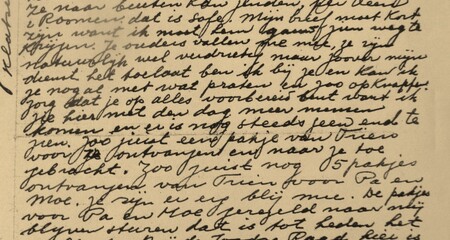 ze naar buiten kan zenden, per
't Roomen, dat is safe. Mijn brief moet kort
zijn want ik moet hem gauw zien weg te
krijgen. Je ouders vallen me mee, ze zijn
natuurlijk wel verdrietig maar zoover mijn
dienst het toelaat ben ik bij ze en kan ik
ze nogal met wat praten en zoo opknappen.
Zorg dat je op alles voorbereid bent want ik
zie hier met den dag meer menschen
komen en er is nog steeds geen eind te
zien. Zoo juist een pakje van Triens
voor je ontvangen en naar je toe
gebracht. Zoo juist nog 5 pakjes
ontvangen van Trien voor Pa en
Moe. Ze zijn er erg blij mee. De pakjes
voor Pa en Moe geregeld naar mij
blijven sturen dat is tot heden het
Joodse Raad hier is